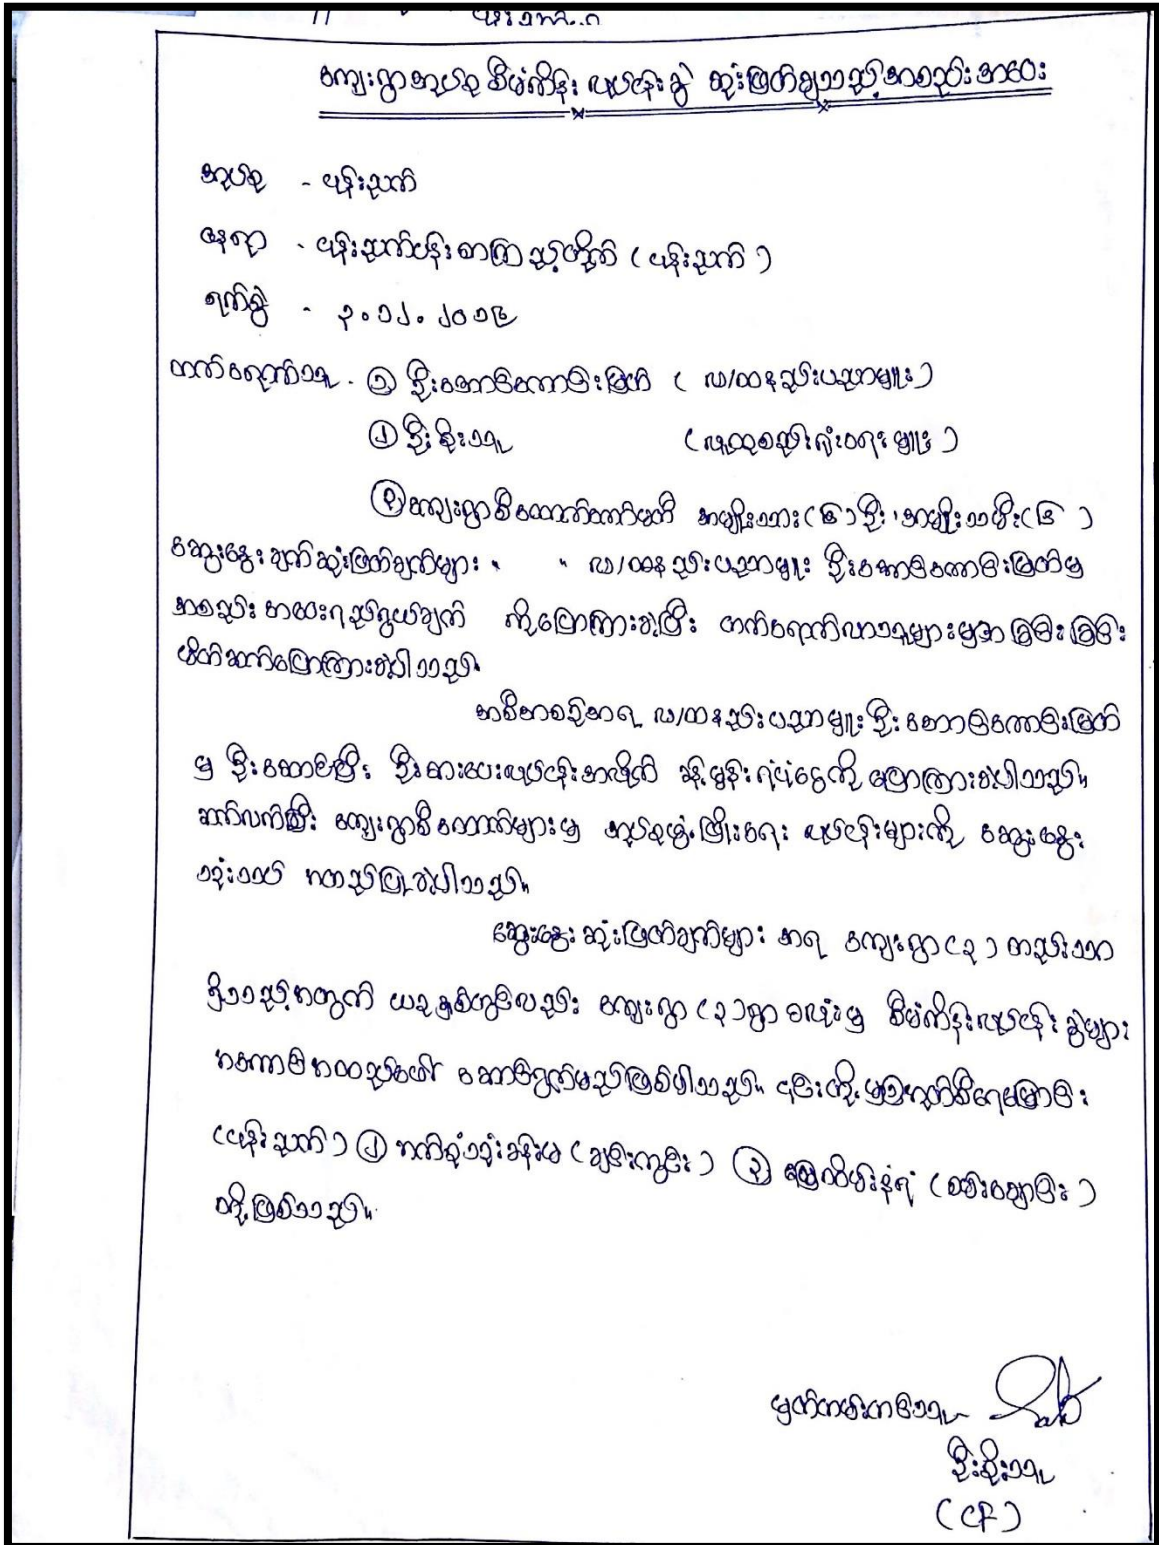 ကျေးရွာအုပ်စု စီမံကိန်း လုပ်ငန်းခွဲ ဆုံးဖြတ်ချသည့်အစည်းအဝေး
အုပ်စု - ပန်းညက်
နေရာ - ပန်းညက်ပန်းစာကြည့်တိုက် (ပန်းညက်)
ရက်စွဲ - ၃.၁၂.၂၀၁၆
တက်ရောက်သူ - ① ဦးအောင်ကောင်းမြတ် (လ/ထနည်းပညာမှူး)
② ဦးစိုးသူ (လူထုစည်းရုံးရေးမှူး)
③ ကျေးရွာစီထောက်ကော်မတီ အမျိုးသား(၆)ဦး၊ အမျိုးသမီး(၆)
ဆွေးနွေးချက်ဆုံးဖြတ်ချက်များ။ ။ လ/ထနည်းပညာမှူး ဦးအောင်ကောင်းမြတ်မှ
အစည်းအဝေးရည်ရွယ်ချက် ကိုပြောကြားခဲ့ပြီး တက်ရောက်လာသူများမှအခြင်းခြင်း
မိတ်ဆက်ပြောကြားခဲ့ပါသည်။
အစီအစဉ်အရ လ/ထနည်းပညာမှူး ဦးအောင်ကောင်းမြတ်
မှ ဦးဆောင်ပြီး ဦးစားပေးလုပ်ငန်းအလိုက် ခန့်မှန်းရံပုံငွေကို ပြောကြားခဲ့ပါသည်။
ဆက်လက်ပြီး ကျေးရွာစီထောက်များမှ အုပ်စုဖွံ့ဖြိုးရေး လုပ်ငန်းများကို ဆွေးနွေး
သုံးသပ် အတည်ပြုခဲ့ပါသည်။
ဆွေးနွေးဆုံးဖြတ်ချက်များ အရ ကျေးရွာ(၃)တည်းသာ
ရှိသည့်အတွက် ယခုနှစ်တွင်လည်း ကျေးရွာ(၃)ရွာစလုံးမှ စီမံကိန်းလုပ်ငန်းခွဲများ
အကောင်အထည်ဖော် ဆောင်ရွက်မည်ဖြစ်ပါသည်။ ၎င်းတို့မှာ
(ပန်းညက်) ② ဘက်စုံသုံးခန်းမ (ချင်းကွင်း) ③ မြေထိမ်းနံရံ (စမ်းချောင်း)
တို့ဖြစ်သည်။
မှတ်တမ်းတင်သူ
ဦးစိုးသူ
(CF)